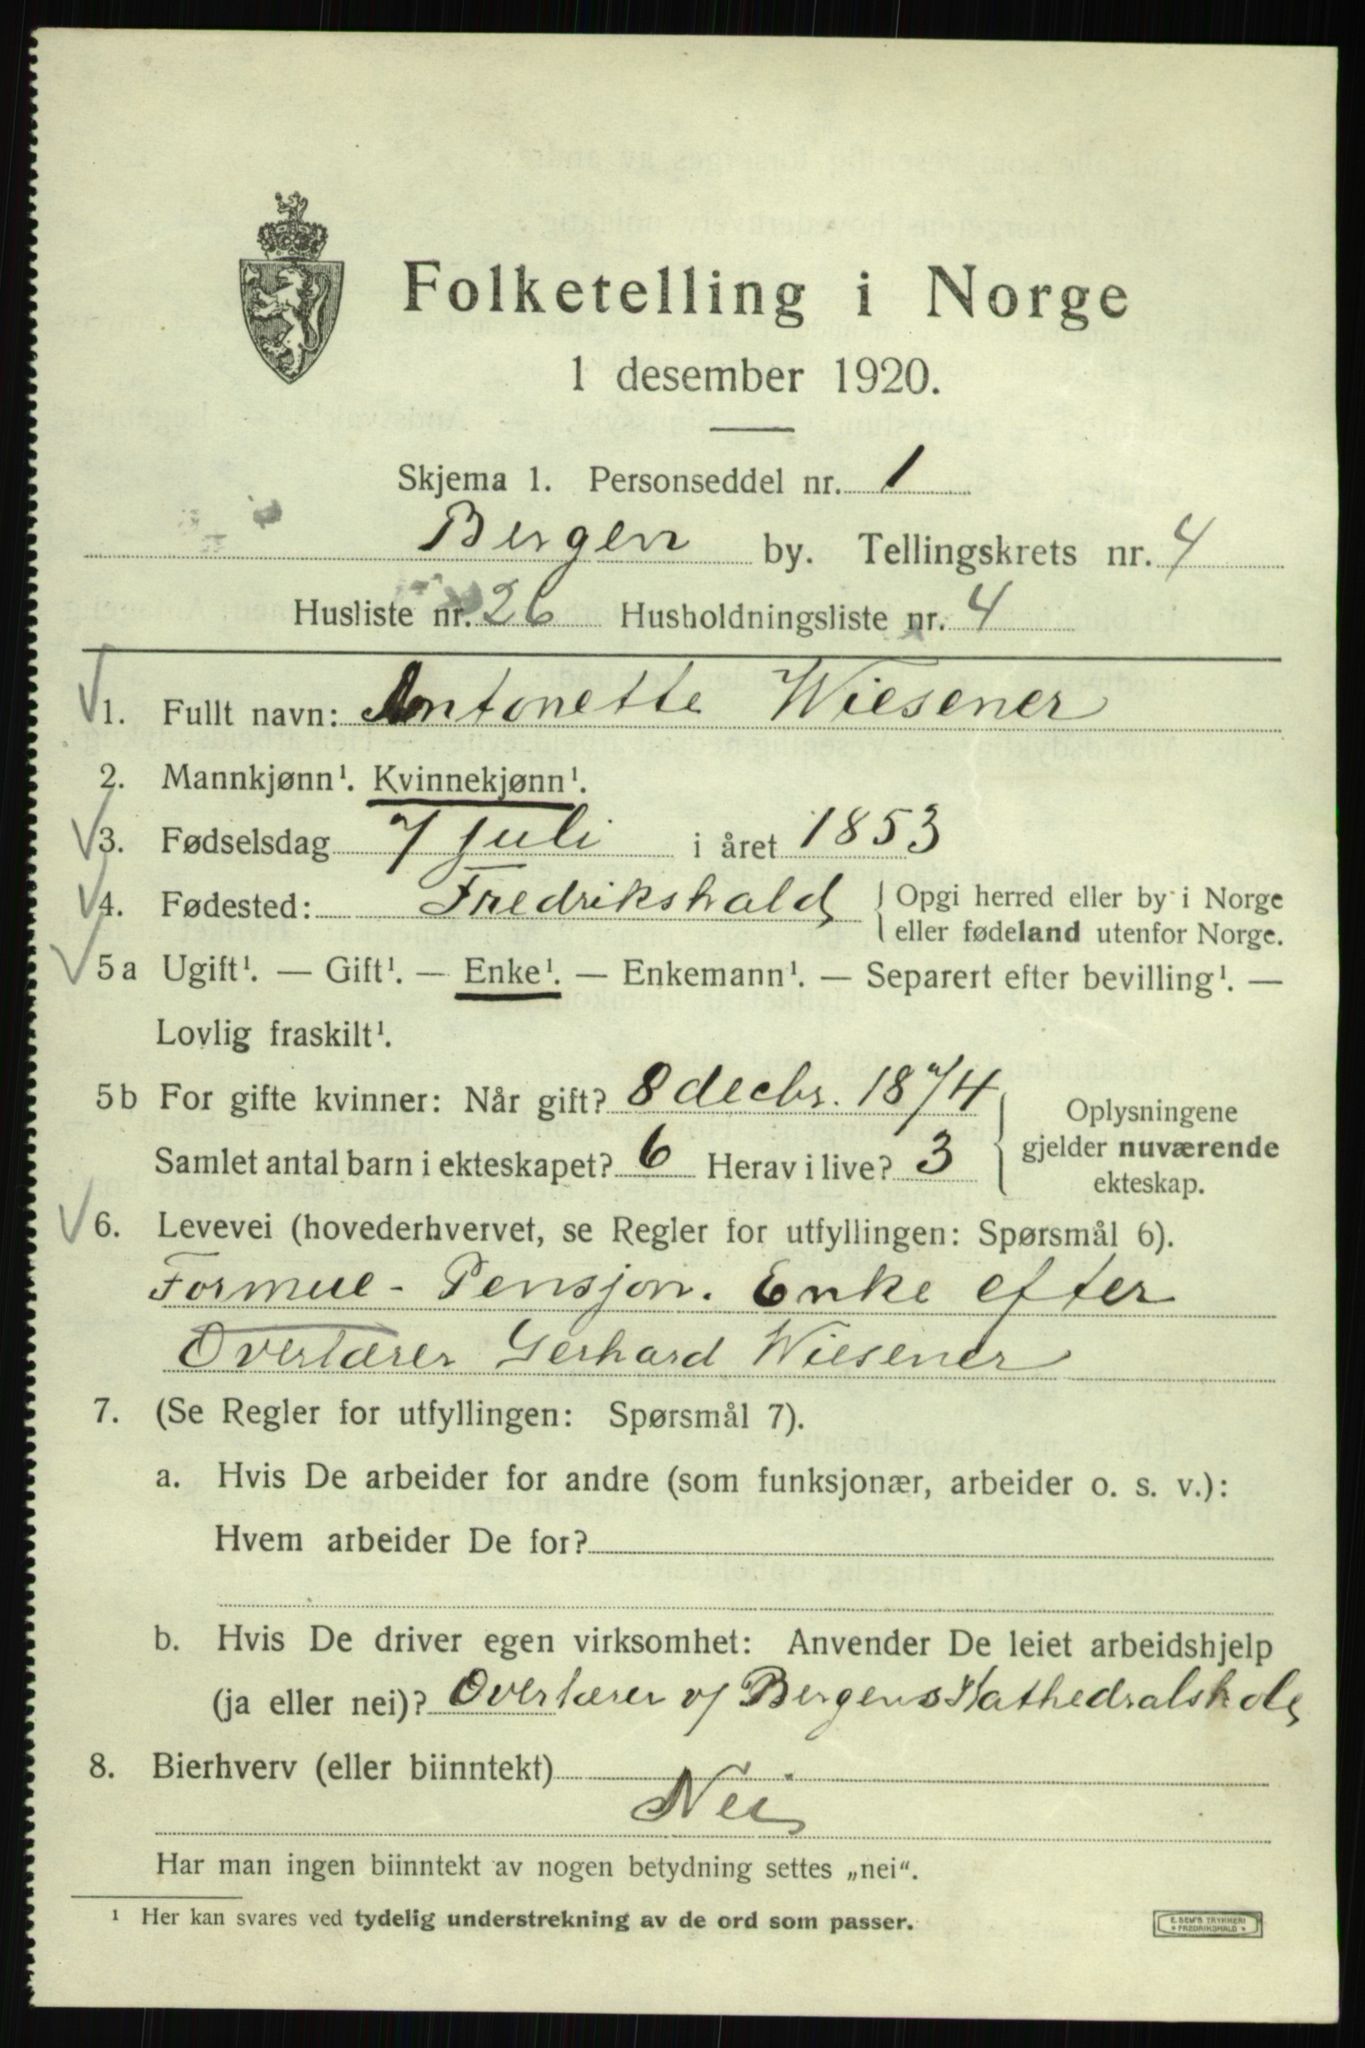 Folketelling i Norge
1 desember 1920.
Skjema 1. Personseddel nr. 1
Bergen by. Tellingskrets nr. 4
Husliste nr. 26 Husholdningsliste nr. 4
1. Fullt navn: Antonette Wiesener
2. Mannkjønn¹. Kvinnekjønn¹.
3. Fødselsdag 7 juli i året 1853
4. Fødested: Fredrikshald { Opgi herred eller by i Norge
eller fødeland utenfor Norge.
5a Ugift¹. — Gift¹. — Enke¹. — Enkemann¹. — Separert efter bevilling¹. —
Lovlig fraskilt¹.
5b For gifte kvinner: Når gift? 8 decbr. 1874
Samlet antal barn i ekteskapet? 6 Herav i live? 3
Oplysningene
gjelder nuværende
ekteskap.
6. Levevei (hovederhvervet, se Regler for utfyllingen: Spørsmål 6).
Formue - Pensjon. Enke efter
Overlærer Gerhard Wiesener
7. (Se Regler for utfyllingen: Spørsmål 7).
a. Hvis De arbeider for andre (som funksjonær, arbeider o. s. v.):
Hvem arbeider De for?
b. Hvis De driver egen virksomhet: Anvender De leiet arbeidshjelp
(ja eller nei)? Overlærer v/ Bergens Kathedralskole
8. Bierhverv (eller biinntekt)
Nei
Har man ingen biinntekt av nogen betydning settes „nei“.
¹ Her kan svares ved tydelig understrekning av de ord som passer.
E. SEM'S TRYKKERI
FREDRIKSHALD